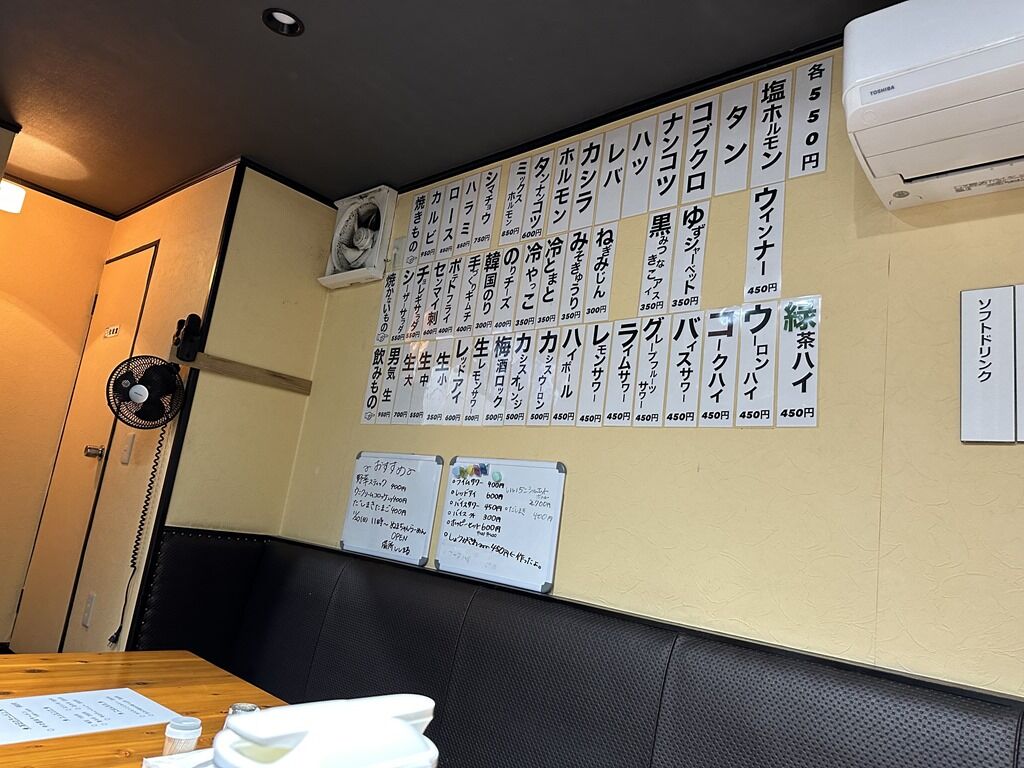 焼きもの
カルビ
ロース
ハラミ
シマチョウ 750円
ミックスホルモン 850円
タンナンコツ 600円
ホルモン
カシラ
レバ
ハツ
ナンコツ
コブクロ
タン
塩ホルモン
各550円
焼かないもの
シーザーサラダ 550円
チョレギサラダ 550円
センマイ刺 600円
ポテトフライ 400円
手づくりキムチ 400円
韓国のり 300円
のりチーズ 400円
冷やっこ 350円
冷とまと 350円
みそきゅうり 350円
ねぎみじん 300円
黒みつきなこアイス 350円
ゆずシャーベット 350円
ウィンナー 450円
飲みもの
男気 生 950円
生 大 700円
生 中 550円
生 小 350円
レッドアイ 600円
生レモンサワー 500円
梅酒ロック 500円
カシスオレンジ 500円
カシスウーロン 500円
ハイボール 450円
レモンサワー 450円
ライムサワー 450円
グレープフルーツサワー 450円
バイスサワー 450円
コークハイ 450円
ウーロンハイ 450円
緑茶ハイ 450円
ソフトドリンク
TOSHIBA
おすすめ
野菜スティック 400円
クリームコロッケ 400円
だしまきたまご 400円
11時〜 ぬまちゃんらーめん
OPEN
場所
ライムサワー 400円
レッドアイ 600円
バイスサワー 450円
バイス 300円
ホッピーセット 600円
2700円
だしまき 400円
450円 ← 作ったよ。